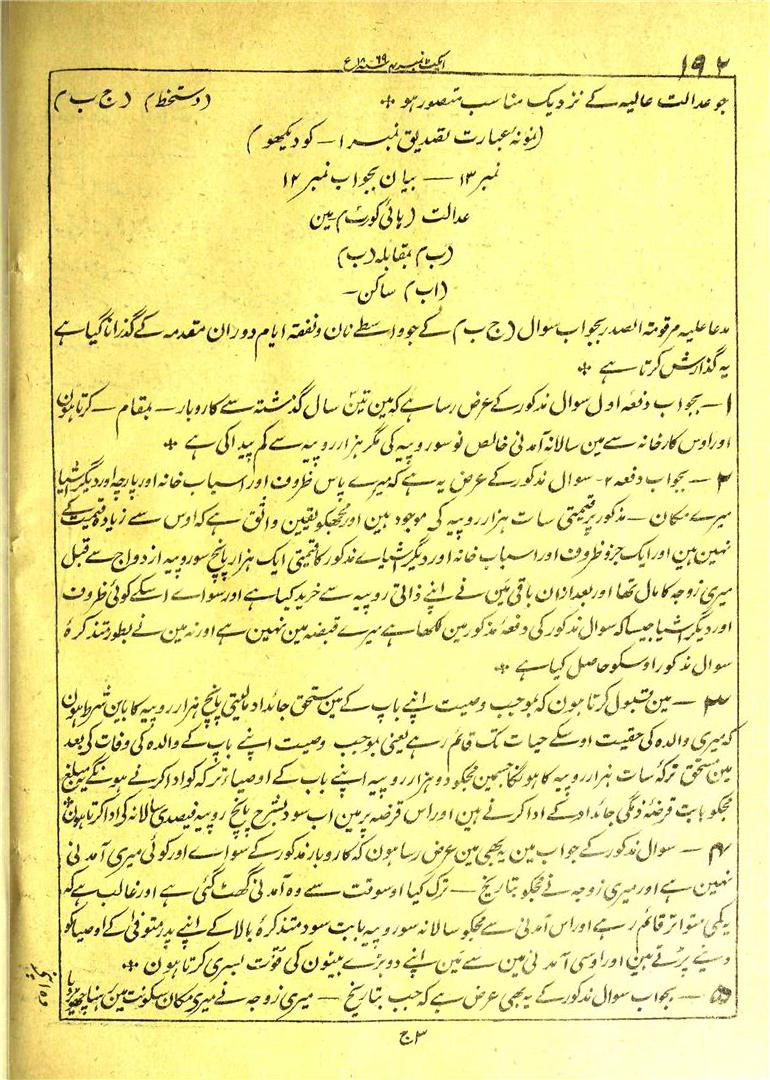 ۱۹۲
ایکٹ نمبر ۴ سنہ ۱۸۶۹ع
جو عدالت عالیہ کے نزدیک مناسب متصور ہو * (دستخط) (ج ب)
(نمونۂ عبارت تصدیق نمبر ۱ - کو دیکھو)
نمبر ۱۳ — بیان بجواب نمبر ۱۲
عدالت (ہائی کورٹ) مین
(ب) بمقابلہ (ب)
(ا ب) ساکن -
مدعا علیہ مرقومۃ الصدر بجواب سوال (ج ب) کے جو واسطے نان و نفقہ ایام دوران مقدمہ کے گذرانا گیا ہے
یہ گذارش کرتا ہے *
۱ - بجواب دفعہ اول سوال مذکور کے عرض رسا ہے کہ مین تین سال گذشتہ سے کاروبار - بمقام - کرتا ہون
اور اوس کارخانہ سے مین سالانہ آمدنی خالص نو سو روپیہ کی مگر ہزار روپیہ سے کم پیدا کی ہے *
۲ - بجواب دفعہ ۲ - سوال مذکور کے عرض یہ ہے کہ میرے پاس ظروف اور اسباب خانہ اور پارچہ اور دیگر اشیا
میرے مکان - مذکور پر قیمتی سات ہزار روپیہ کی موجود ہین اور مجھکو یقین واثق ہے کہ اوس سے زیادہ قیمت کے
نہین ہین اور ایک جزو ظروف اور اسباب خانہ اور دیگر اشیاے مذکور کا قیمتی ایک ہزار پانچ سو روپیہ ازدواج سے قبل
میری زوجہ کا مال تھا اور بعد ازان باقی مین نے اپنے ذاتی روپیہ سے خرید کیا ہے اور سواے اسکے کوئی ظروف
اور دیگر اشیا جیسا کہ سوال مذکور کی دفعۂ مذکور مین لکھا ہے میرے قبضہ مین نہین ہے اور نہ مین نے بطور متذکرۂ
سوال مذکور اوسکو حاصل کیا ہے *
۳ - مین قبول کرتا ہون کہ بموجب وصیت اپنے باپ کے مین مستحق جائداد مالیتی پانچ ہزار روپیہ کا باین شرط ہون
کہ میری والدہ کی حقیت اوسکے حیات تک قائم رہے یعنی بموجب وصیت اپنے باپ کے والدہ کی وفات کی بعد
مین مستحق ترکۂ سات ہزار روپیہ کا ہونگا جسمین مجکو دو ہزار روپیہ اپنے باپ کے اوصیاء ترکہ کو ادا کرنے ہونگے یہ مبلغ
مجکو بابت قرضۂ ذمگی جائداد کے ادا کرنے ہین اور اس قرضہ پر مین اب سود بشرح پانچ روپیہ فیصدی سالانہ کی ادا کرتا ہون *
۴ - سوال مذکور کے جواب مین یہ بھی مین عرض رسا ہون کہ کاروبار مذکور کے سواے اور کوئی میری آمدنی
نہین ہے اور میری زوجہ نے مجکو بتاریخ - ترک کیا اوسوقت سے وہ آمدنی گھٹ گئی ہے اور غالب ہے کہ
یہ کمی متواتر قائم رہے اور اس آمدنی سے مجکو سالانہ سو روپیہ بابت سود متذکرۂ بالا کے اپنے پدر متوفی کے اوصیا کو
دینے پڑتے ہین اور اوسی آمدنی مین سے مین اپنے دو بڑے بیٹون کی قوت بسری کرتا ہون *
۵ - بجواب سوال مذکور کے یہ بھی عرض ہے کہ جب بتاریخ - میری زوجہ نے میری مکان سکونت مین رہنا چھوڑ دیا
۳ ج